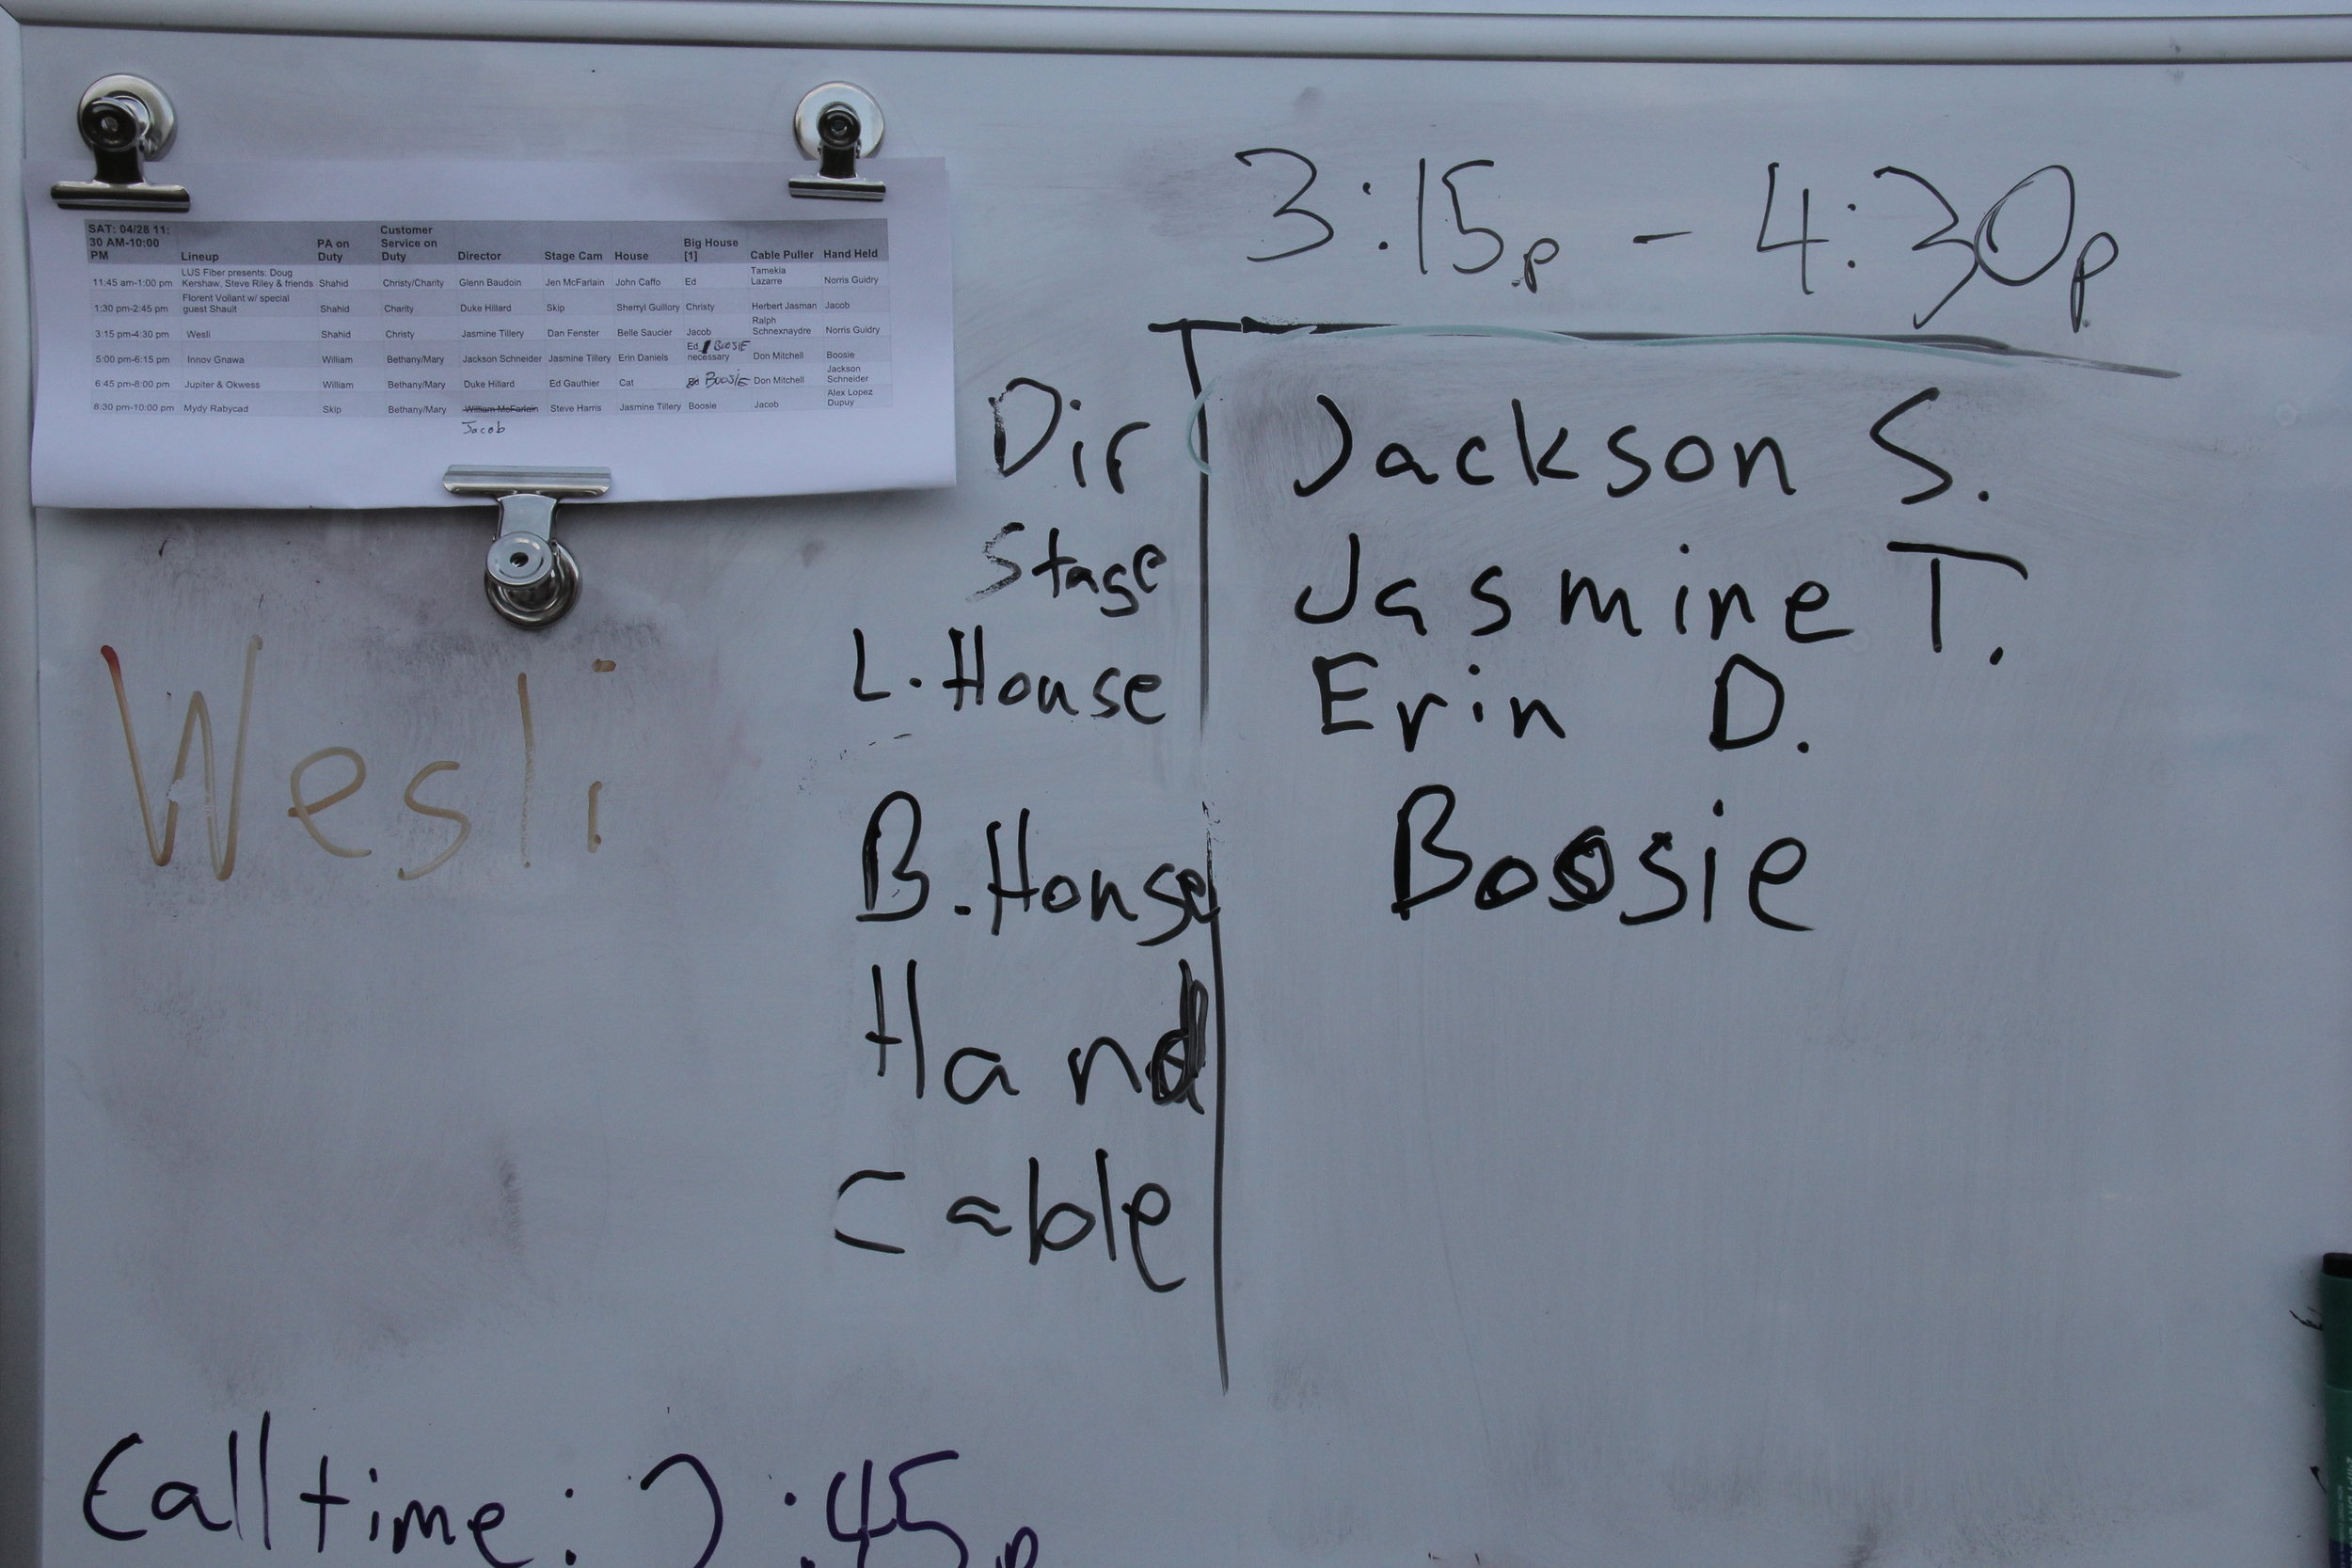 SAT: 04/28 11:30 AM-10:00 PM Lineup PA on Duty Customer Service on Duty Director Stage Cam House Big House [1] Cable Puller Hand Held
11:45 am-1:00 pm LUS Fiber presents: Doug Kershaw, Steve Riley & friends Shahid Christy/Charity Glenn Baudoin Jen McFarlain John Caffo Ed Tamekia Lazarre Norris Guidry
1:30 pm-2:45 pm Florent Vollant w/ special guest Shauit Shahid Charity Duke Hillard Skip Sherryl Guillory Christy Herbert Jasman Jacob
3:15 pm-4:30 pm Wesli Shahid Christy Jasmine Tillery Dan Fenster Belle Saucier Jacob Ralph Schnexnaydre Norris Guidry
5:00 pm-6:15 pm Innov Gnawa William Bethany/Mary Jackson Schneider Jasmine Tillery Erin Daniels Ed BOOSIE necessary Don Mitchell Boosie
6:45 pm-8:00 pm Jupiter & Okwess William Bethany/Mary Duke Hillard Ed Gauthier Cat BOOSIE Don Mitchell Jackson Schneider
8:30 pm-10:00 pm Mydy Rabycad Skip Bethany/Mary William McFarlain Steve Harris Jasmine Tillery Boosie Jacob Alex Lopez Dupuy
Jacob
3:15p - 4:30p
Dir Jackson S.
Stage Jasmine T.
L. House Erin D.
Wesli
B. House Boosie
Hand
Cable
Call time: 2:45p